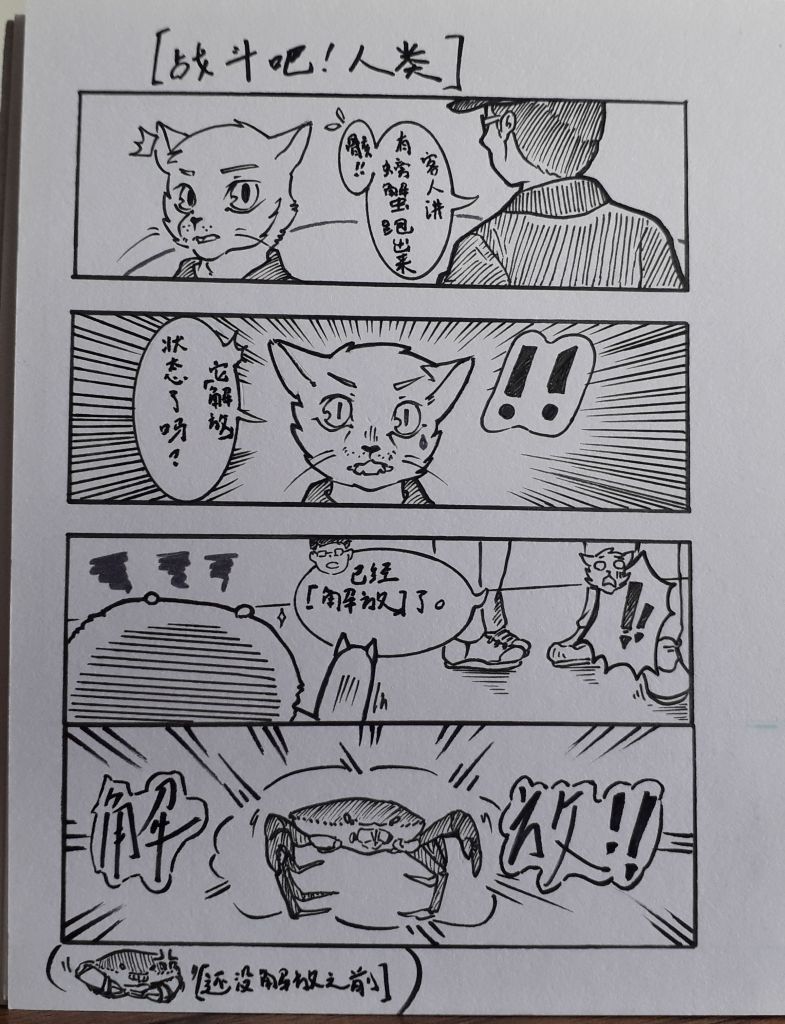 [战斗吧！人类]
客人讲
有螃蟹跑出来
！！
它解放
状态了吗？
！！
已经
「解放」了。
！！
解放！！
[还没解放之前]